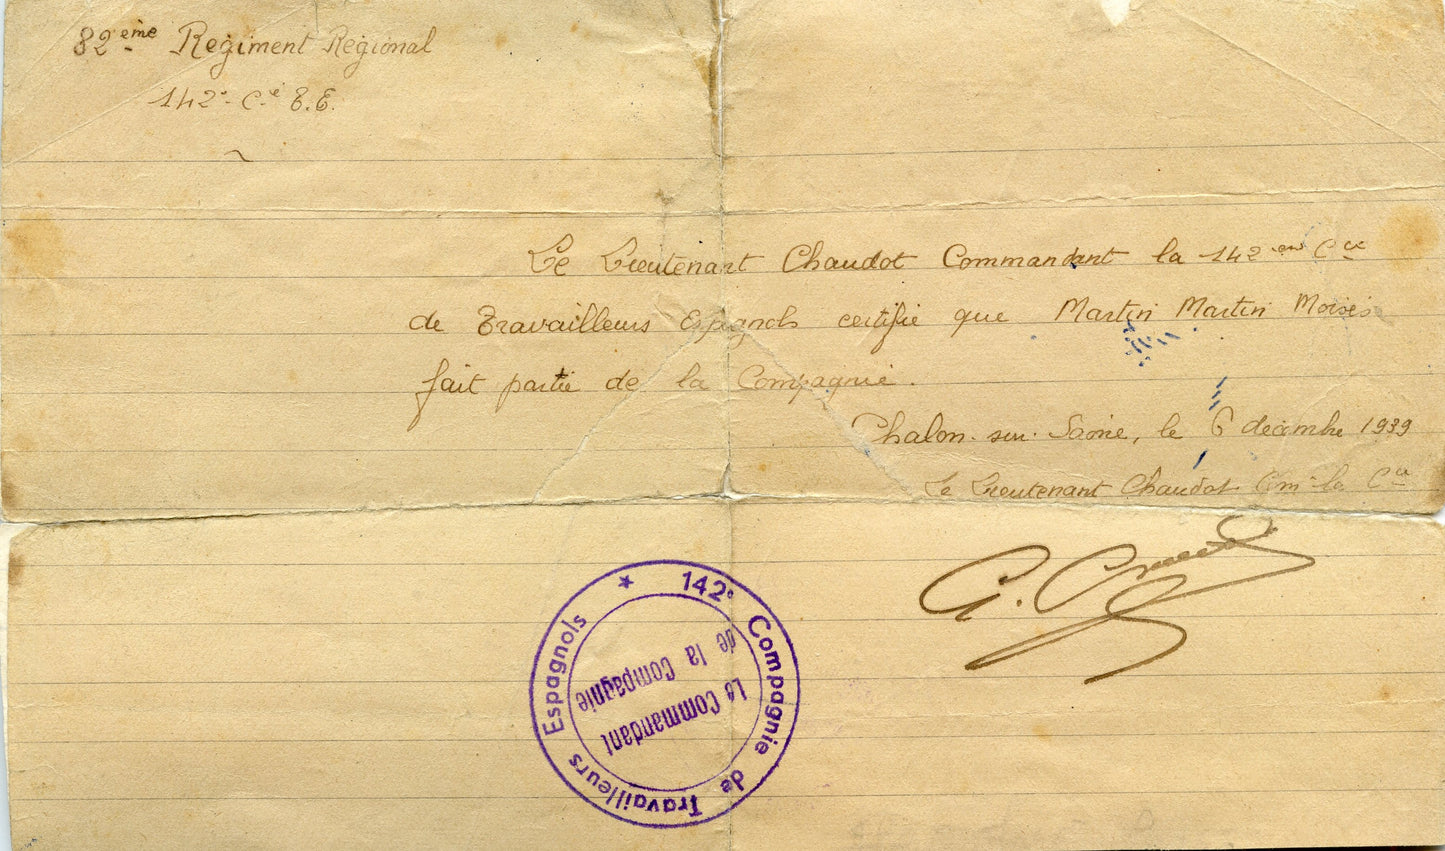 82ème Regiment Régional
142e Cie T.E.
Le Lieutenant Chaudot Commandant la 142 eme Cie
de Travailleurs Espagnols certifie que Martin Martin Moisés
fait partie de la Compagnie.
Chalon-sur-Saône, le 6 décembre 1939
Le Lieutenant Chaudot Cm la Cie
142e Compagnie de Travailleurs Espagnols
Le Commandant
de la Compagnie